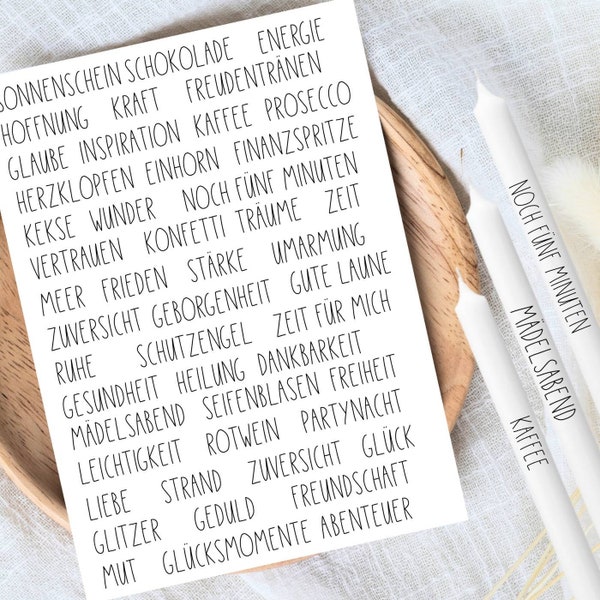 SONNENSCHEIN SCHOKOLADE ENERGIE
HOFFNUNG KRAFT FREUDENTRÄNEN
GLAUBE INSPIRATION KAFFEE PROSECCO
HERZKLOPFEN EINHORN FINANZSPRITZE
KEKSE WUNDER NOCH FÜNF MINUTEN
VERTRAUEN KONFETTI TRÄUME ZEIT
MEER FRIEDEN STÄRKE UMARMUNG
ZUVERSICHT GEBORGENHEIT GUTE LAUNE
RUHE SCHUTZENGEL ZEIT FÜR MICH
GESUNDHEIT HEILUNG DANKBARKEIT
MÄDELSABEND SEIFENBLASEN FREIHEIT
LEICHTIGKEIT ROTWEIN PARTYNACHT
LIEBE STRAND ZUVERSICHT GLÜCK
GLITZER GEDULD FREUNDSCHAFT
MUT GLÜCKSMOMENTE ABENTEUER
NOCH FÜNF MINUTEN
MÄDELSABEND
KAFFEE